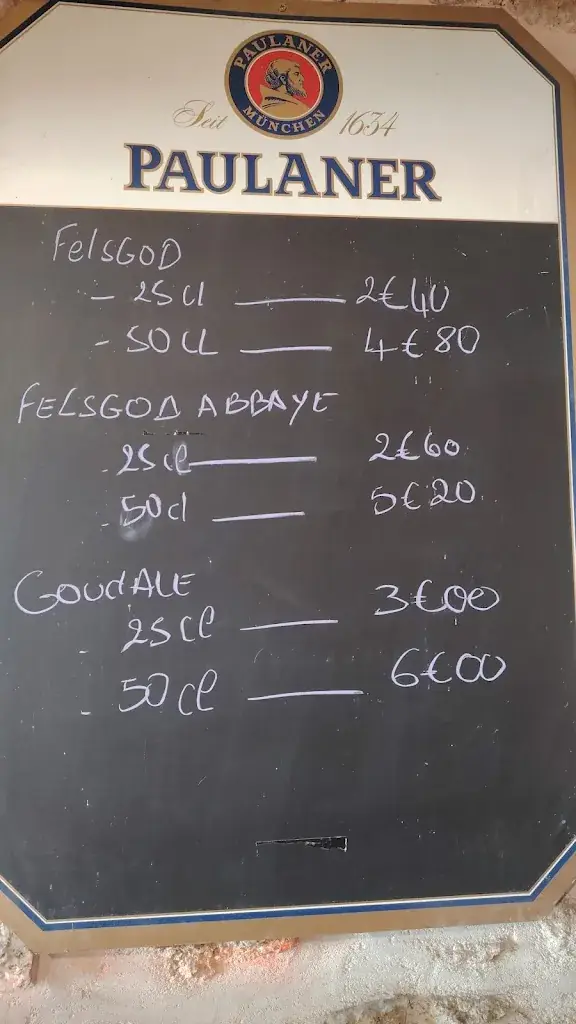 PAULANER
MÜNCHEN
Seit 1634
PAULANER
FelSGOD
- 25cl — 2€40
- 50CL — 4€80
FELSGOD ABBAYE
- 25cl — 2€60
- 50cl — 5€20
GOUdALE
- 25cl — 3€00
- 50cl — 6€00